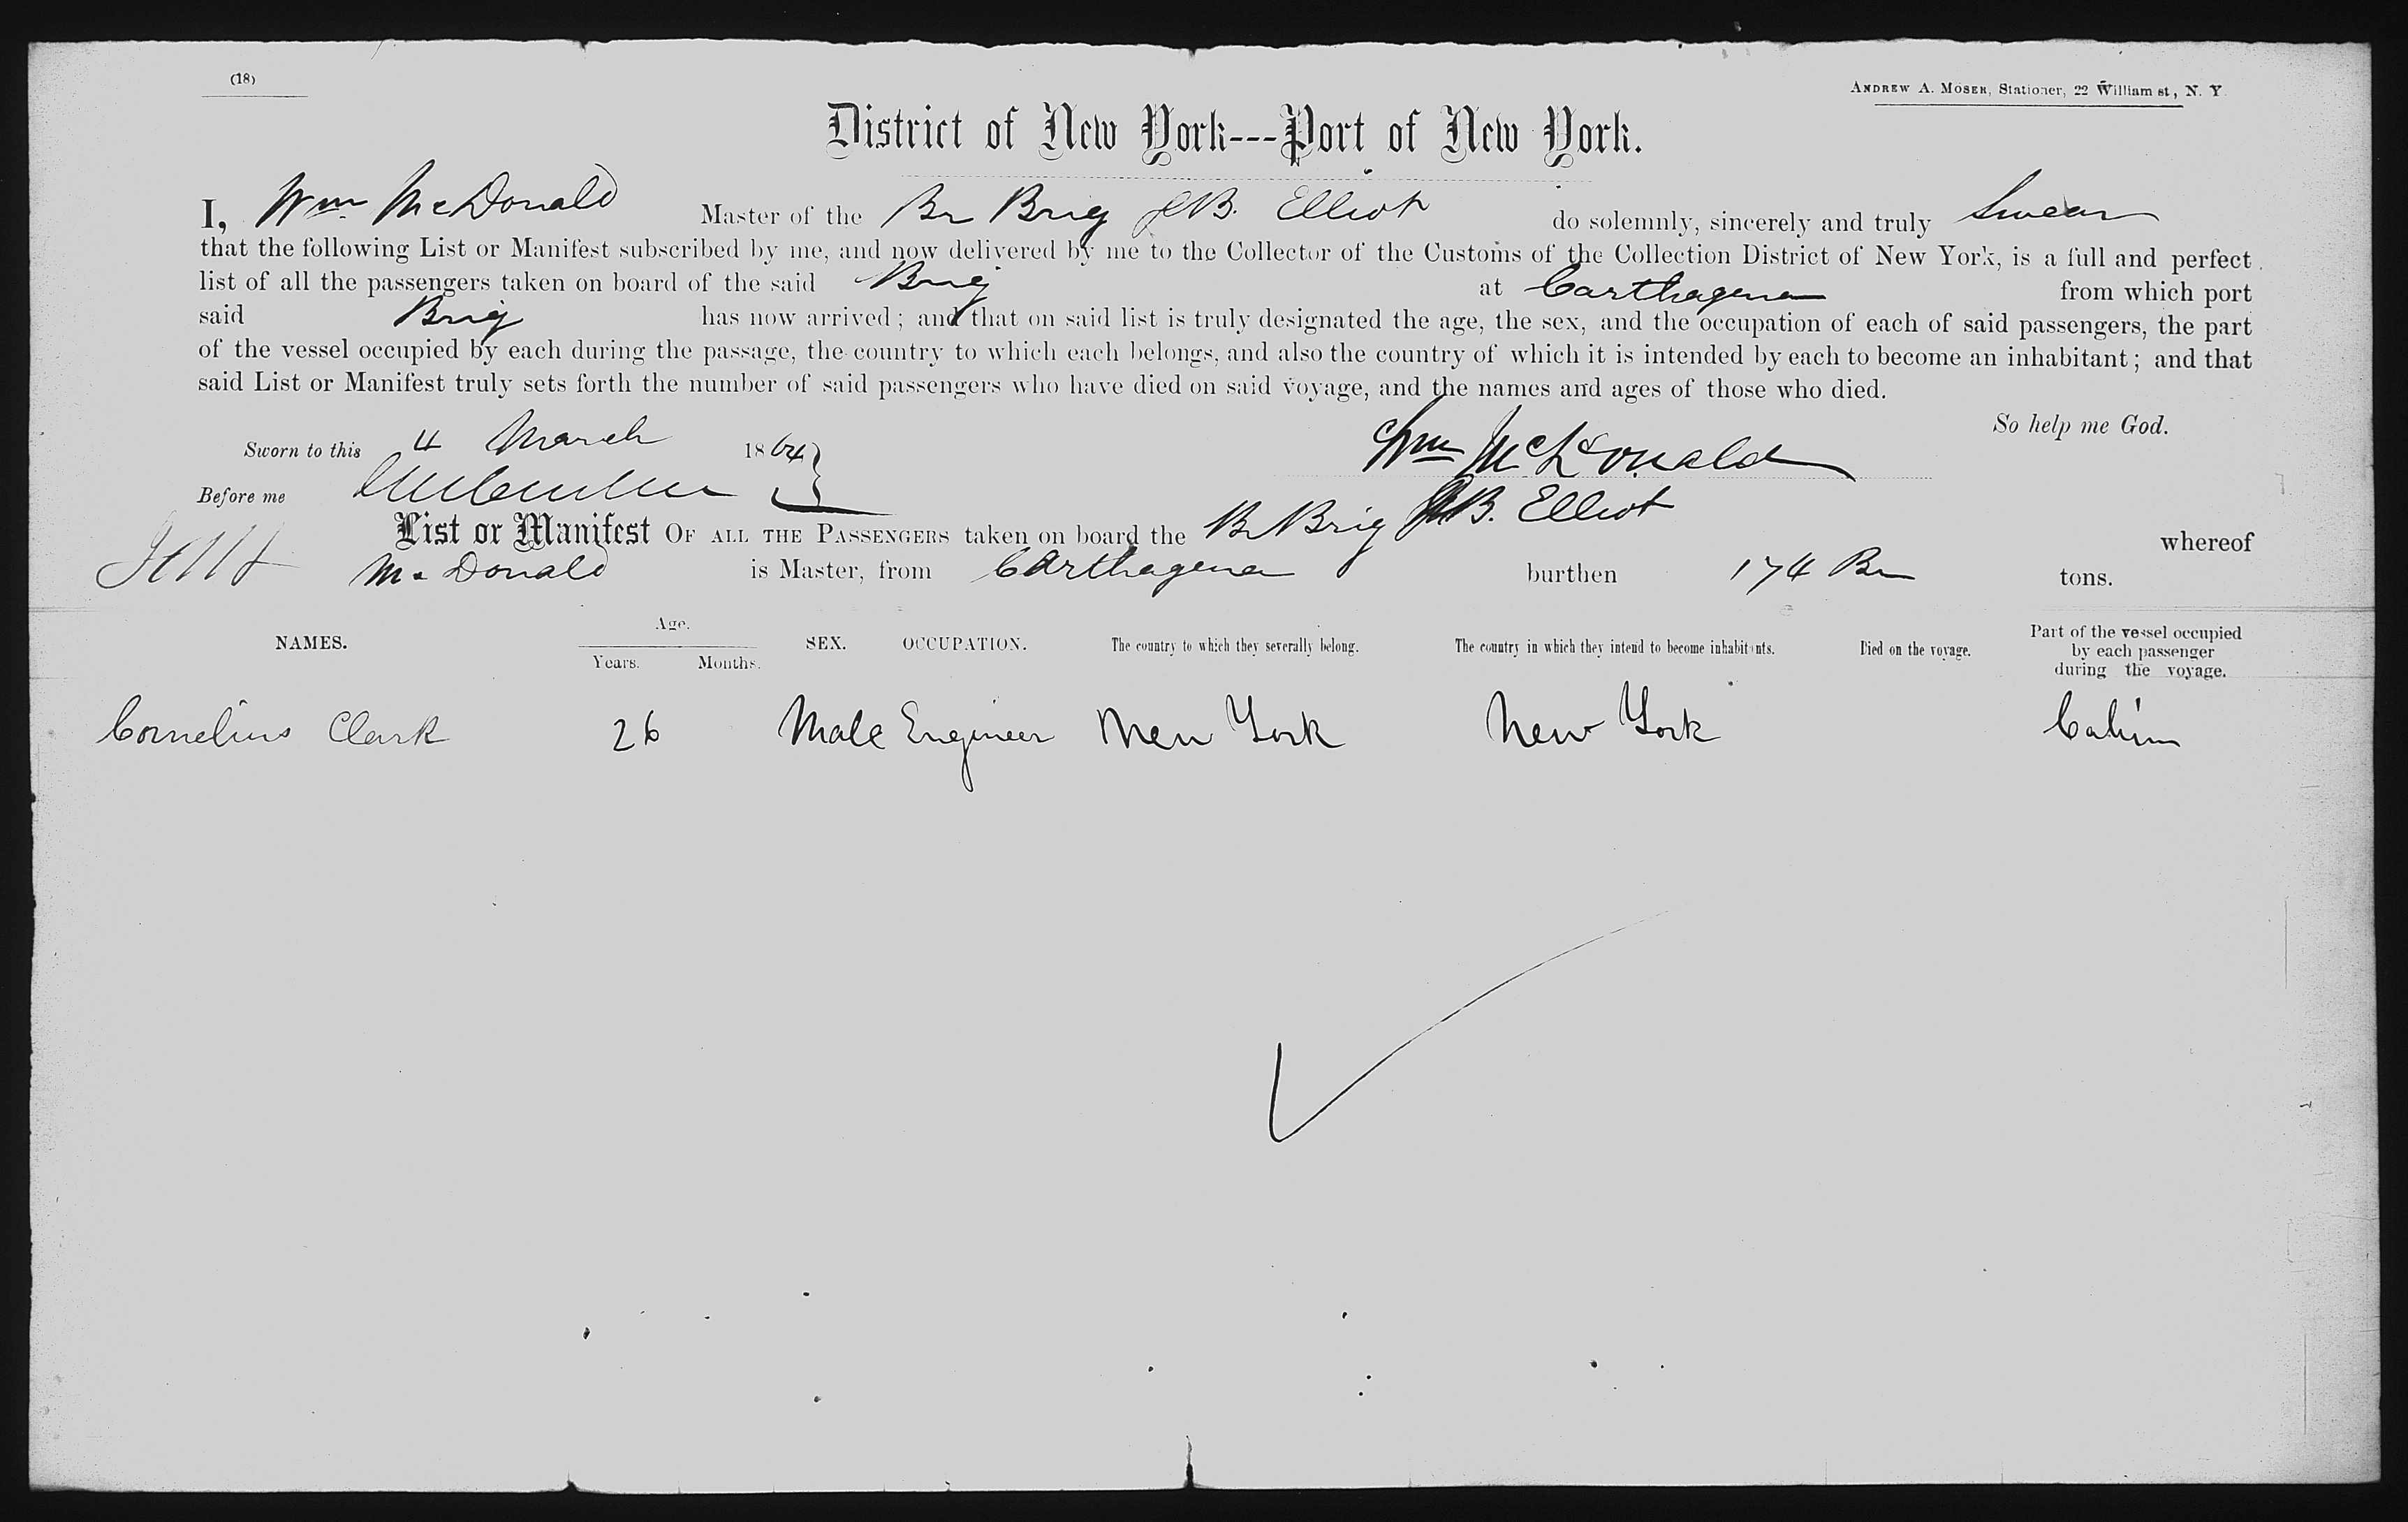 (18)
ANDREW A. MOSER, Stationer, 22 William st, N. Y
District of New York---Port of New York.
I, Wm McDonald Master of the Br Brig J.B. Elliot do solemnly, sincerely and truly Swear
that the following List or Manifest subscribed by me, and now delivered by me to the Collector of the Customs of the Collection District of New York, is a full and perfect
list of all the passengers taken on board of the said Brig at Carthagena from which port
said Brig has now arrived; and that on said list is truly designated the age, the sex, and the occupation of each of said passengers, the part
of the vessel occupied by each during the passage, the country to which each belongs, and also the country of which it is intended by each to become an inhabitant; and that
said List or Manifest truly sets forth the number of said passengers who have died on said voyage, and the names and ages of those who died.
So help me God.
Sworn to this 4 March 1864
Wm McDonald
Before me
List or Manifest OF ALL THE PASSENGERS taken on board the Br Brig B. Elliot whereof
McDonald is Master, from Carthagena burthen 174 Br tons.
NAMES. Age. Years. Months. SEX. OCCUPATION. The country to which they severally belong. The country in which they intend to become inhabitants. Died on the voyage. Part of the vessel occupied by each passenger during the voyage.
Cornelius Clark 26 Male Engineer New York New York Cabin